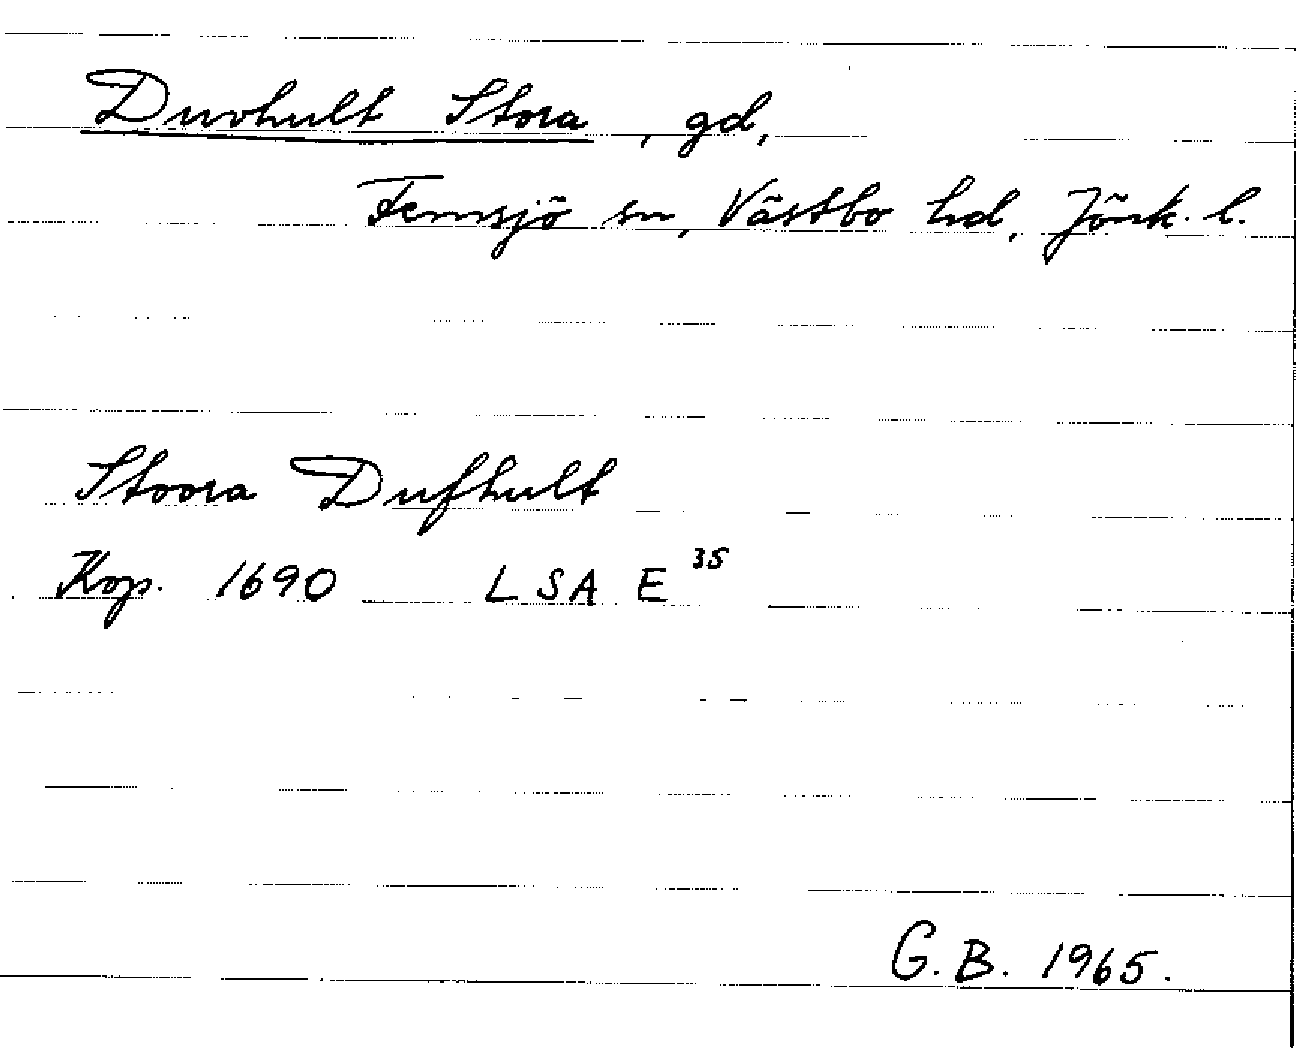 Duvhult Stora, gd,
Femsjö sn, Västbo hd, Jönk. l.
Stoora Dufhult
Kop. 1690 LSA E 35
G.B. 1965.